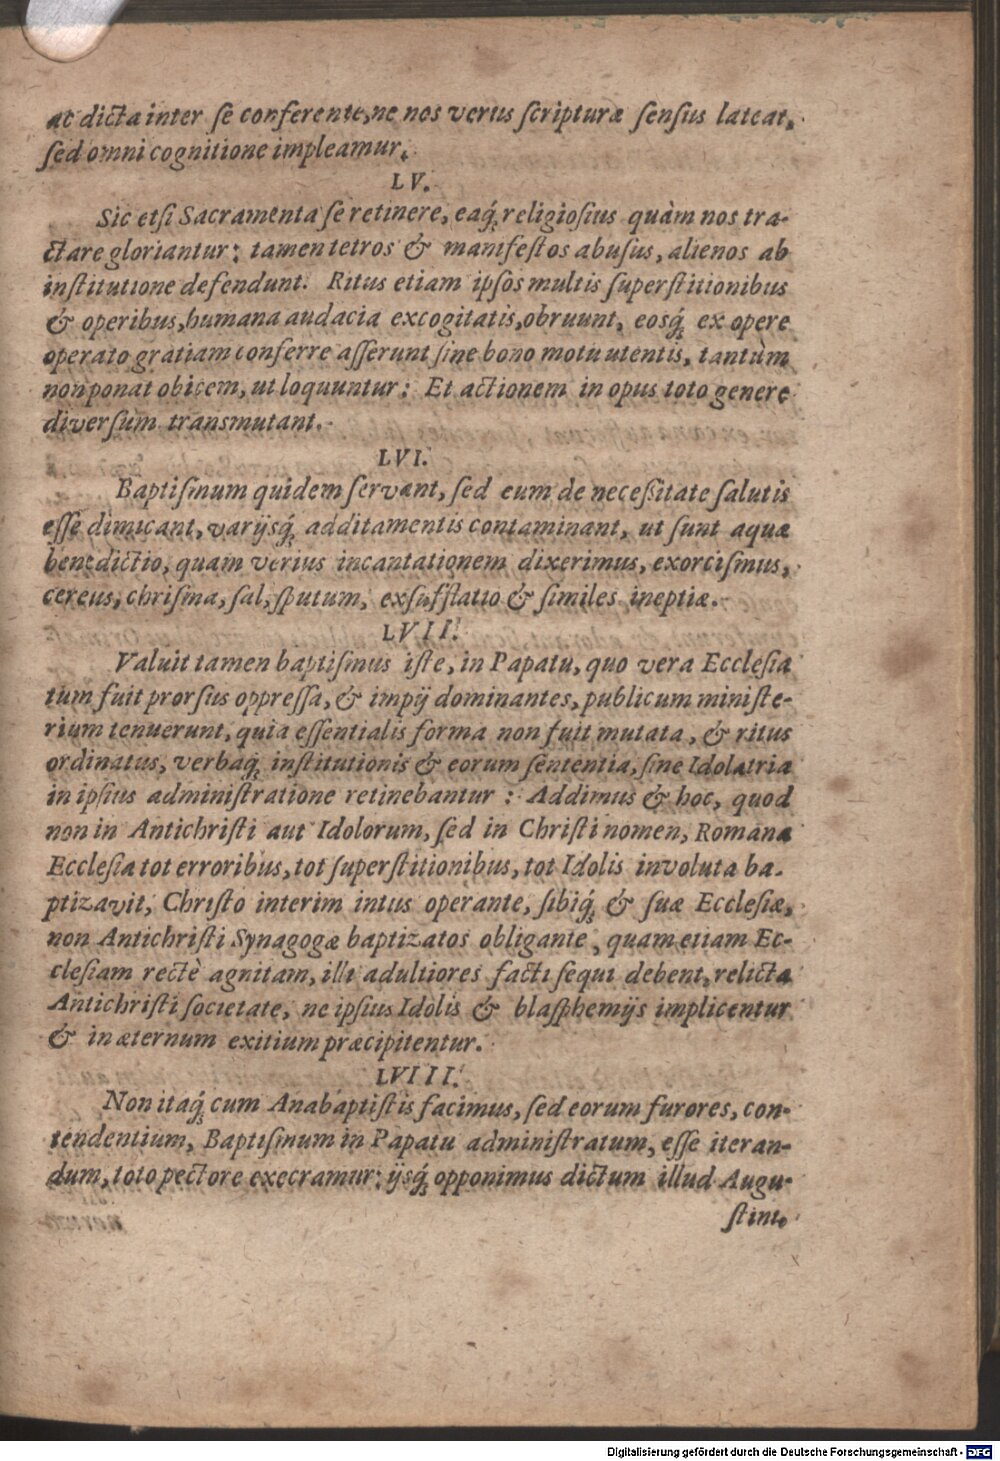 at dicta inter se conferente, ne nos verus scripturæ sensus lateat,
sed omni cognitione impleamur.
LV.
Sic etsi Sacramenta se retinere, eaq́; religiosius quàm nos tra-
ctare gloriantur: tamen tetros & manifestos abusus, alienos ab
institutione defendunt. Ritus etiam ipsos multis superstitionibus
& operibus, humana audacia excogitatis, obruunt, eosq́; ex opere
operato gratiam conferre asserunt sine bono motu utentis, tantùm
non ponat obicem, ut loquuntur: Et actionem in opus toto genere
diversum transmutant.
LVI.
Baptismum quidem servant, sed eum de necessitate salutis
esse dimicant, varijsq́; additamentis contaminant, ut sunt aquæ
benedictio, quam verius incantationem dixerimus, exorcismus,
cereus, chrisma, sal, sputum, exsufflatio & similes ineptiæ.
LVII.
Valuit tamen baptismus iste, in Papatu, quo vera Ecclesia
tum fuit prorsus oppressa, & impij dominantes, publicum ministe-
rium tenuerunt, quia essentialis forma non fuit mutata, & ritus
ordinatus, verbaq́; institutionis & eorum sententia, sine Idolatria
in ipsius administratione retinebantur: Addimus & hoc, quod
non in Antichristi aut Idolorum, sed in Christi nomen, Romana
Ecclesia tot erroribus, tot superstitionibus, tot Idolis involuta ba-
ptizavit, Christo interim intus operante, sibiq́; & suæ Ecclesiæ,
non Antichristi Synagogæ baptizatos obligante, quam etiam Ec-
clesiam rectè agnitam, illi adultiores facti sequi debent, relicta
Antichristi societate, ne ipsius Idolis & blasphemijs implicentur
& in æternum exitium præcipitentur.
LVIII.
Non itaq́; cum Anabaptistis facimus, sed eorum furores, con-
tendentium, Baptismum in Papatu administratum, esse iteran-
dum, toto pectore execramur; ijsq́; opponimus dictum illud Augu-
stini.
Digitalisierung gefördert durch die Deutsche Forschungsgemeinschaft - DFG